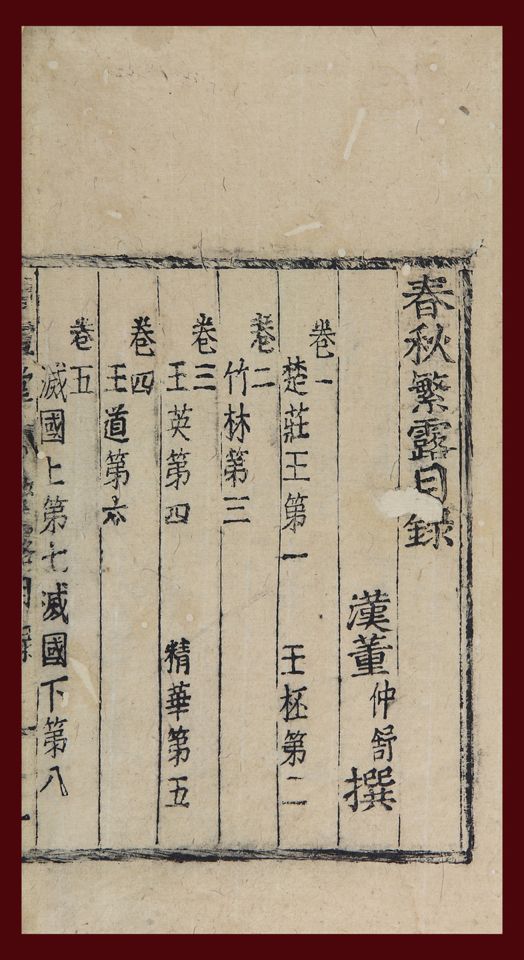 春秋繁露目録
漢董仲舒撰
卷一
楚莊王第一 王柸第二
卷二
竹林第三
卷三
王英第四 精華第五
卷四
王道第六
卷五
滅國上第七滅國下第八